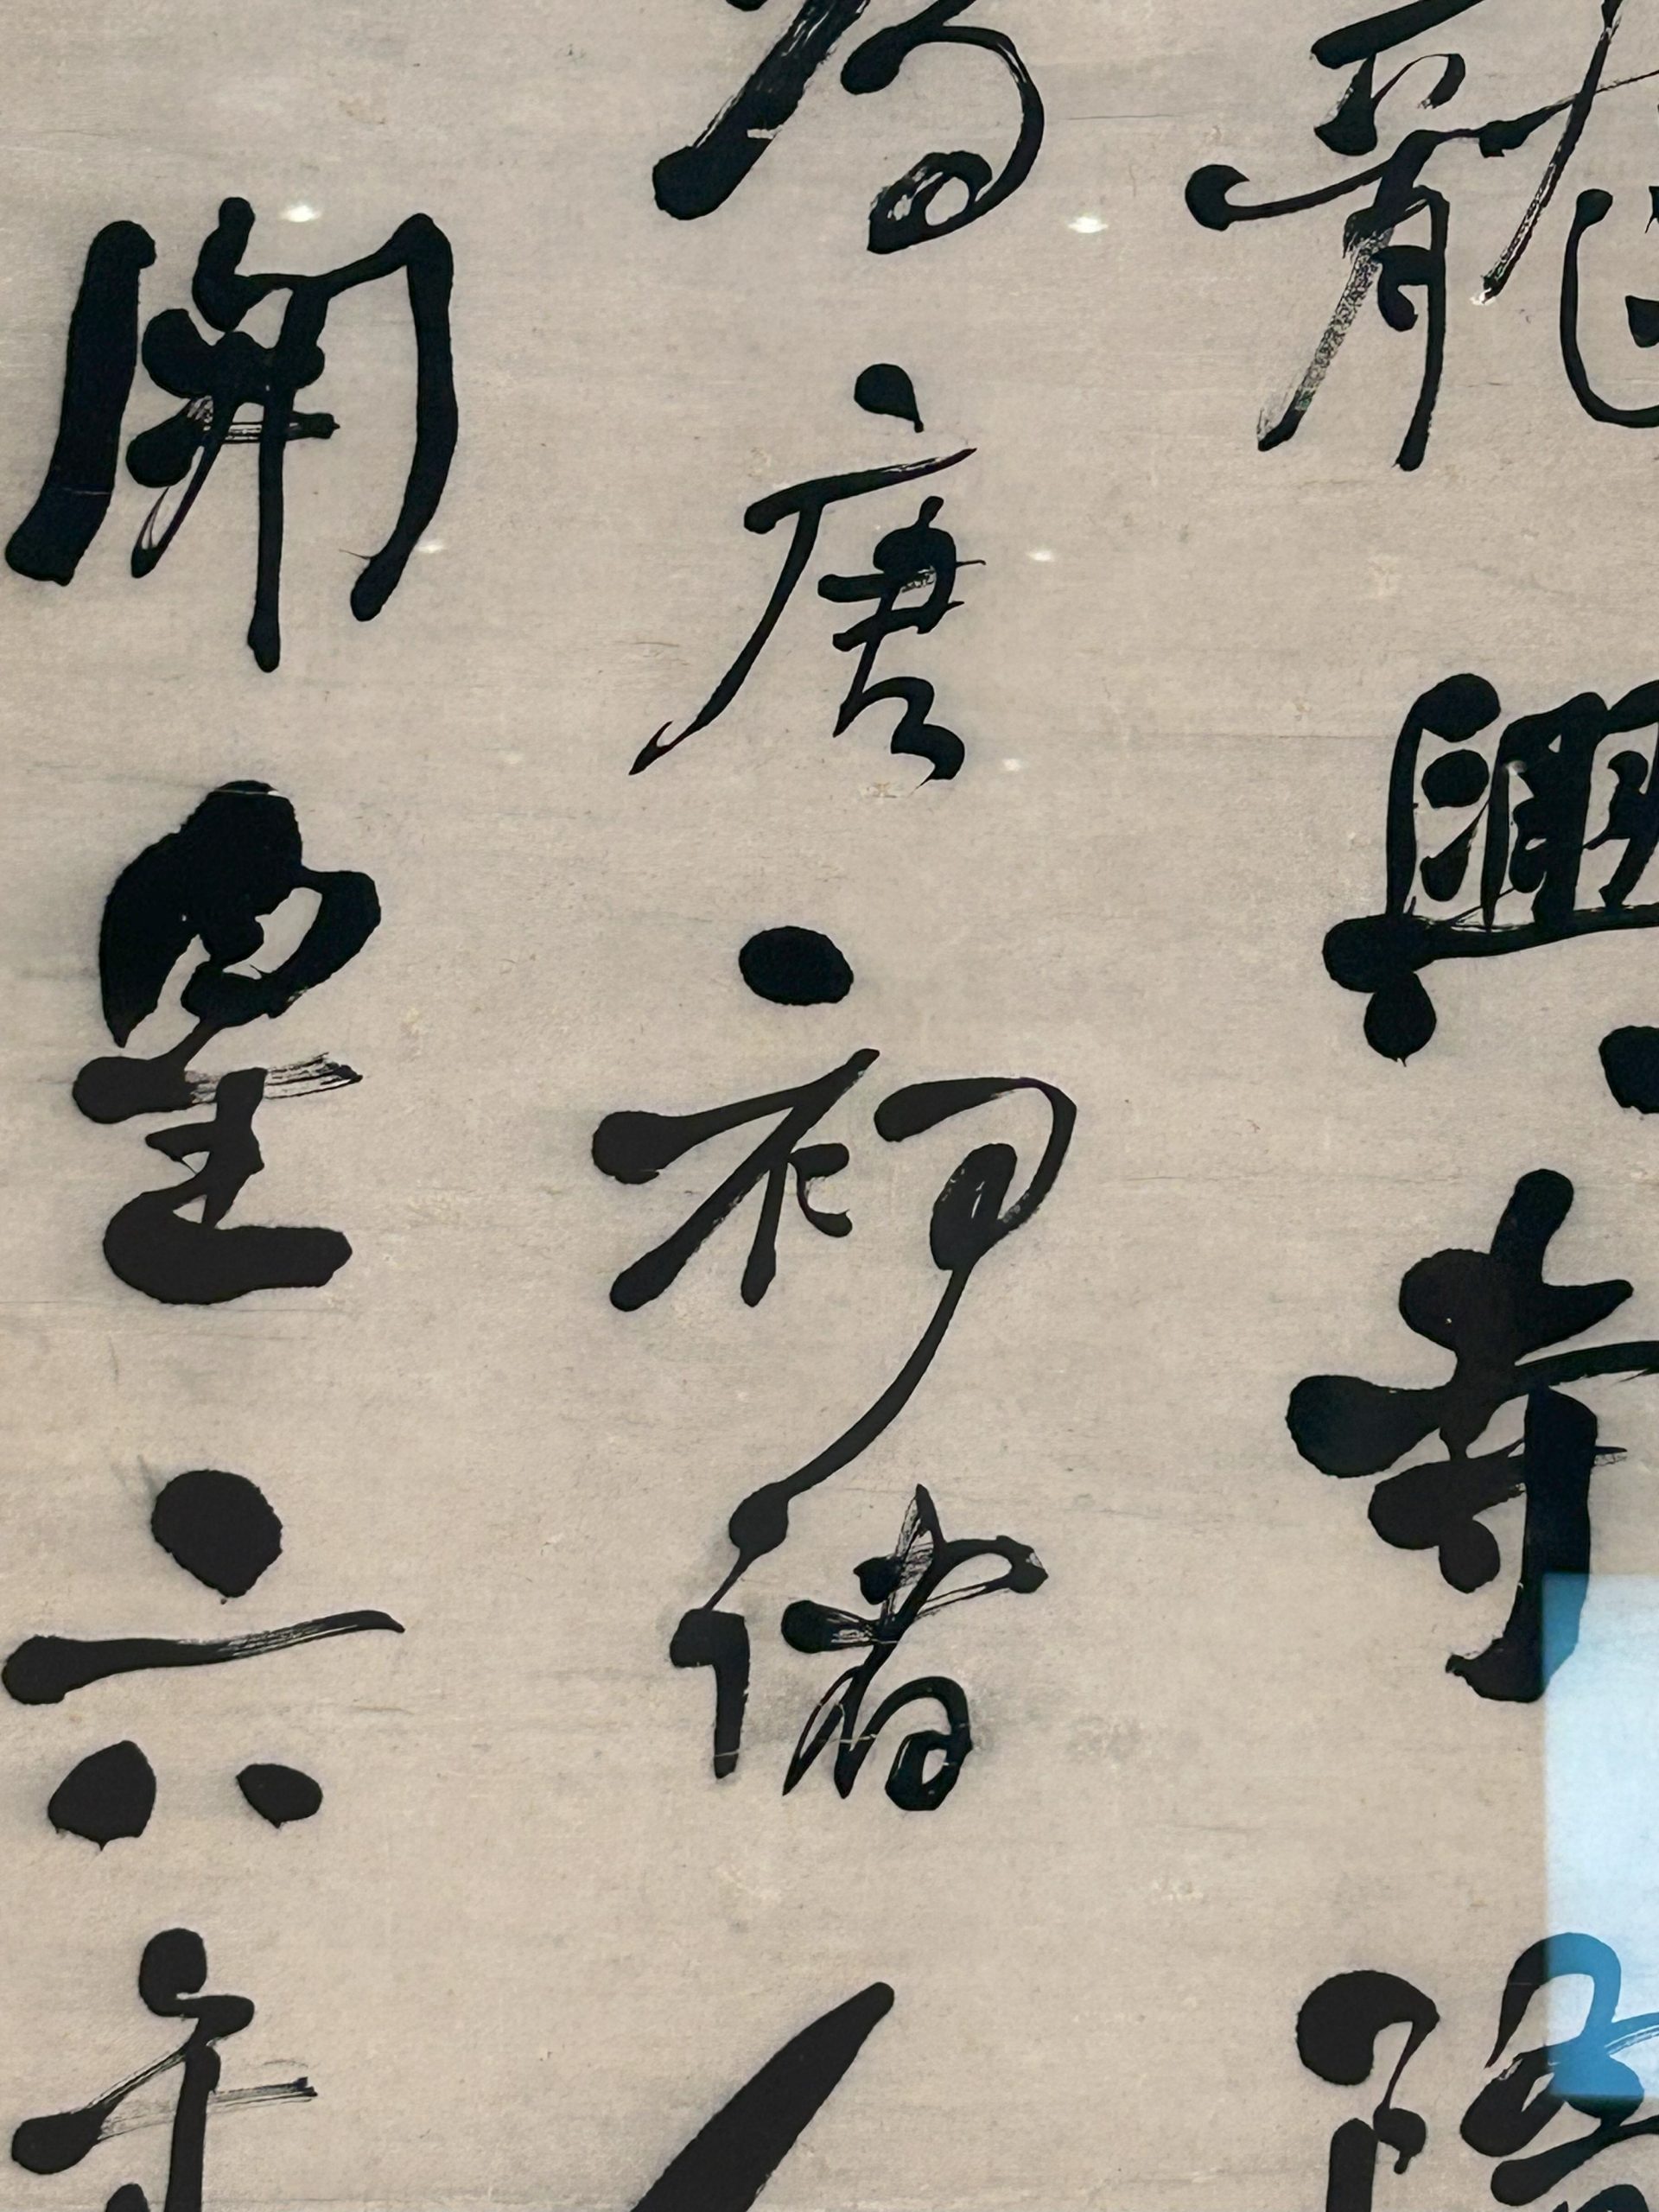 龍興寺隋
為唐初諸
開皇六年